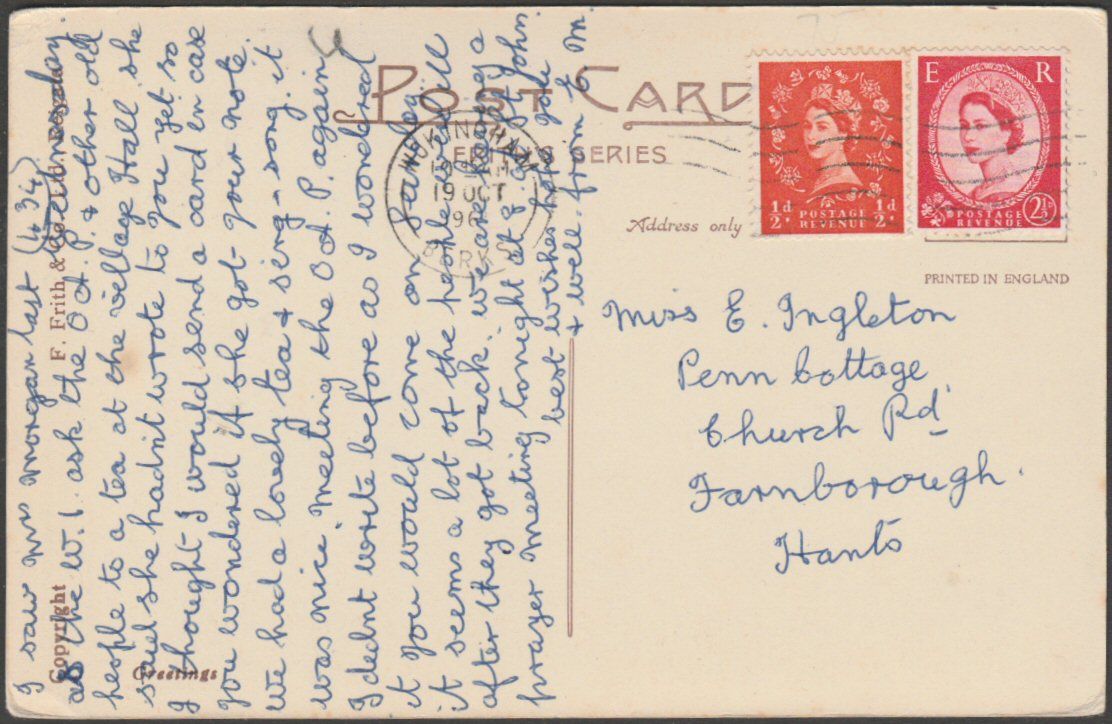 POST CARD
FRITH'S SERIES
Address only
PRINTED IN ENGLAND
½d ½d
POSTAGE
REVENUE
E R
POSTAGE
REVENUE
2½D
WOKINGHAM
19 OCT
196
BERKS
Miss E. Ingleton
Penn Cottage
Church Rd
Farnborough.
Hants
I saw Mrs Morgan last Wednesday.
as the W.I. ask the O.A.P. & other old
people to a tea at the village Hall she
said she hadn't wrote to you yet so
I thought I would send a card in case
you wondered if she got your note.
we had a lovely tea & sing-song. it
was nice meeting the O.A.P. again
I didnt write before as I wondered
if you would come on Sunday.
it seems a lot of the people is ill
after they got back. we are having a
prayer meeting tonight at 8. of John
best wishes hope you
& well. from M.
Copyright
F. Frith & Co. Ltd. Reigate
Greetings